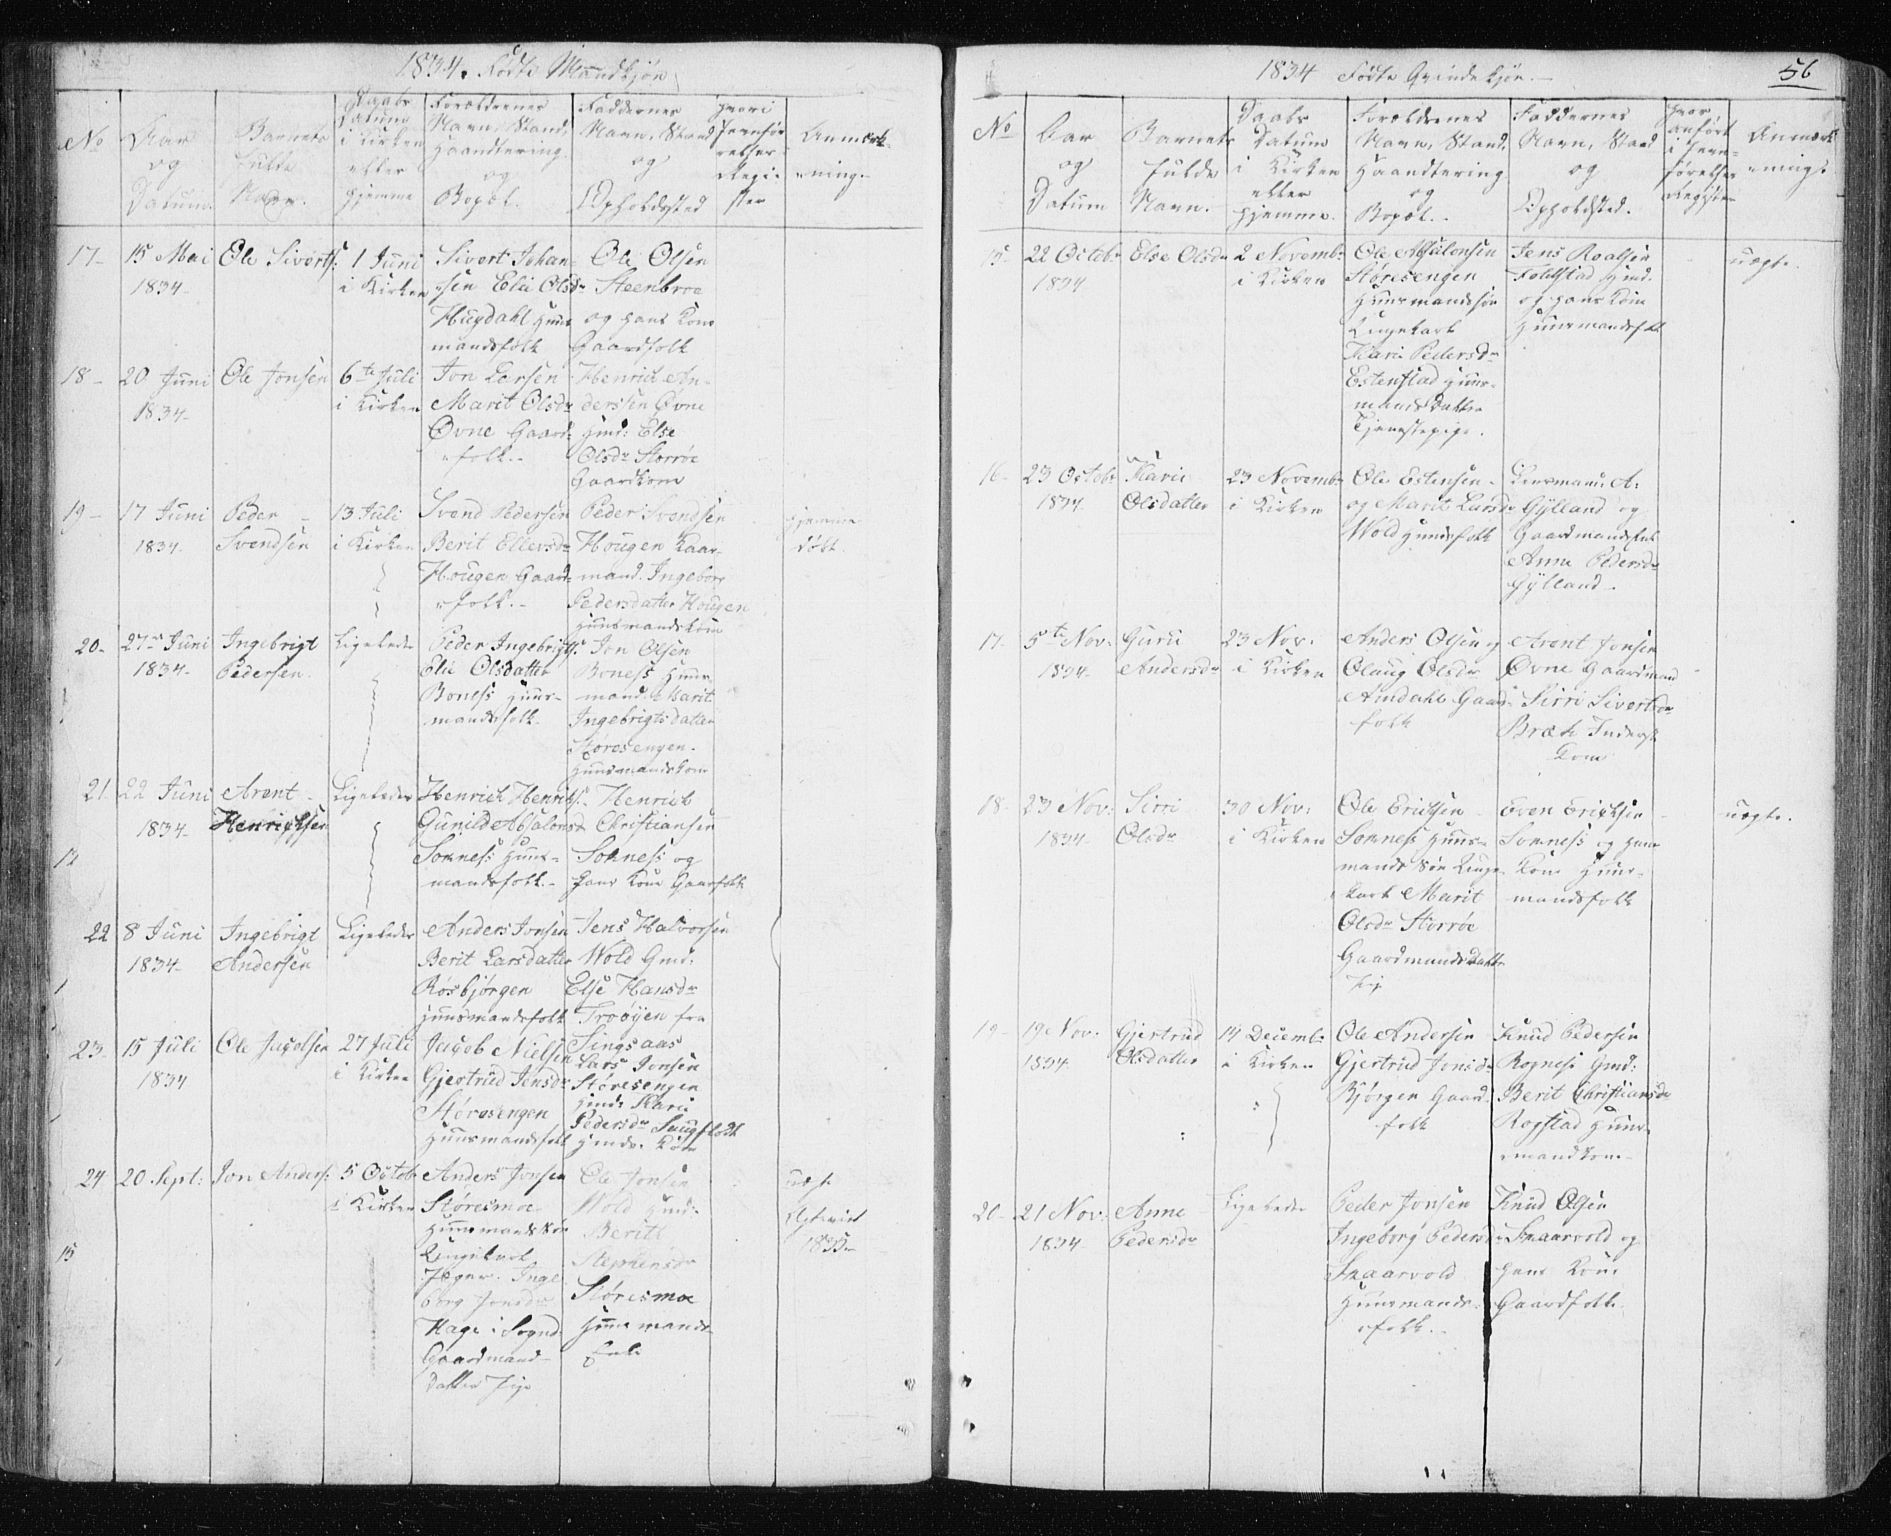 1834. Födte Mandkjön
No
Aar
og
Datum.
Barnets
fulde
Navn.
Daabs
Datum
i Kirken
eller
hjemme
Forældrenes
Navn, Stand,
Haandtering
og
Bopæl.
Faddernes
Navn, Stand
og
Opholdssted
hvori
Jevnfö-
relses-
Regi-
ster
Anmærk-
ning.
17-
15 Mai
1834-
Ole Siverts:
1 Juni
i Kirken
Sivert Johan-
sen Elii Olsdr
Hugdahl Huus
mandsfolk
Ole Olsen
Steenbroe
og hans Kone
Gaardfolk
18-
20 Juni
1834-
Ole Jonsen
6te Juli
i Kirken
Jon Larsen
Marit Olsdr
Øvne Gaard-
folk.-
Henrich An-
derssen Øvne
Hmd: Else
Olsdr Storröe
Gaardkone
19-
17 Juni
1834.
Peder
Svendsen
13 Juli
i Kirken
Svend Pedersen
Berit Ellevsdr
Hougen Gaard-
folk.-
Peder Svendsen
Hougen Gaar-
mand. Ingebor
Pedersdatter Hougen
Huusmandskone
hjemme
döbt.
20-
27 Juni
1834-
Ingebrigt
Pedersen.
Ligeledes
Peder Ingebrigts
Elii Olsdatter
Bones Huus-
mandsfolk.
Jon Olsen
Bones Huus-
mand. Marit
Ingebrigtsdatter
Störosengen.
Huusmandskone
21
22 Juni
1834-
Arent
Henrichsen
Ligeledes
Henrich Henrichs:
Gunild Absalonsdr
Sokness Huus-
mandsfolk.-
Henrich
Christiansen
Soknes og
hans Kone Gaarfolk
22
8 Juni
1834-
Ingebrigt
Andersen
Ligeledes
Anders Jonsen
Berit Larsdatter
Rosbjörgen
Huusmandsfolk
Jens Halvorsen
Wold Gmd:
Else Hansdr
Troöyen fra
Singsaas
23-
15 Juli
1834
Ole Jacobsen
27 Juli
i Kirken
Jacob Nielsen
Gjertrud Jensdr
Störosengen
Huusmandsfolk
Lars Jonsen
Störesengen
Hmd: Kari
Pedersdr Haugflodt
Hmds. Kone
24
20 Sept:
Jon Anders:
5 Octob
i Kirken
Anders Jonsen
Störesmoe
Huusmandssön
Ungkarl
Inge
borg Jonsdr
Hage i Sogned
Gaardmand-
datter Pige
Ole Jonsen
Wold Hmd:-
Berith
Stephensdr
Störesmoe
Huusmands-
folk
uægte
1835-
1834 Födte Qvindekjön.-
56
No
Aar
og
Datum
Barnets
fulde
Navn.
Daabs
Datum
i Kirken
eller
hjemme.
Forældrenes
Navn, Stand,
Haandtering
og
Bopæl.
Faddernes
Navn, Stand
og
Opholdssted.
hvor
anfört
i Jevn-
förelses
Register
Anmærk
ninger
15-
22 Octob:
1834
Else Olsdr
2 Novemb:
i Kirken
Ole Absalonsen
Störesengen
Huusmandssön
Ungekarl
Kari Pedersdr
Estenstad Huus-
mandsdatter
Tjenestepige.
Jens Roalsen
Foldstad Hmd:
og hans Kone
Huusmandsfolk
uægte.
16-
23 Octob:
1834
Kari
Olsdatter
23 Novemb:
i Kirken
Ole Estensen
og Marit Larsdr
Wold Huusfolk
Gylland og
Gaardmandsfolk
Anne Pedersdr
Gylland-
17-
5te Nov:
1834
Guru
Andersdr
23 Nov:
i Kirken
Anders Olsen og
Olaug Olsdr
Amdahl Gaard-
folk
Arent Jonsen
Øvne Gaardmand
Sirri Sivertsdr
Bræk Inderst
Kone
18-
23 Nov:
1834
Sirri
Olsdr
30 Nov:
i Kirken
Ole Erichsen
Soknes Huus-
mands Sön Unge
karl Marit
Olsdr Storröe
Gaardmandsdatter
Pige
Even Erichsen
Soknes og hans
Kone Huus-
mandsfolk
uægte.
19-
19 Nov.
1834
Gjertrud
Olsdatter
14 Decemb:
i Kirken
Ole Andersen
Gjertrud Jonsdr
Bjørgen Gaard-
folk
Knud Pedersen
Rognes Gmd:
Berit Christiansdr
Rogstad Huus-
mandkone-
20-
21 Nov:
1834
Anne
Pedersdr
Ligeledes
Peder Jonsen
Ingeborg Pedersdr
Snaarvold
Huusmands-
folk.-
Knud Olsen
Snaarvold og
hans Kone
Gaardfolk.